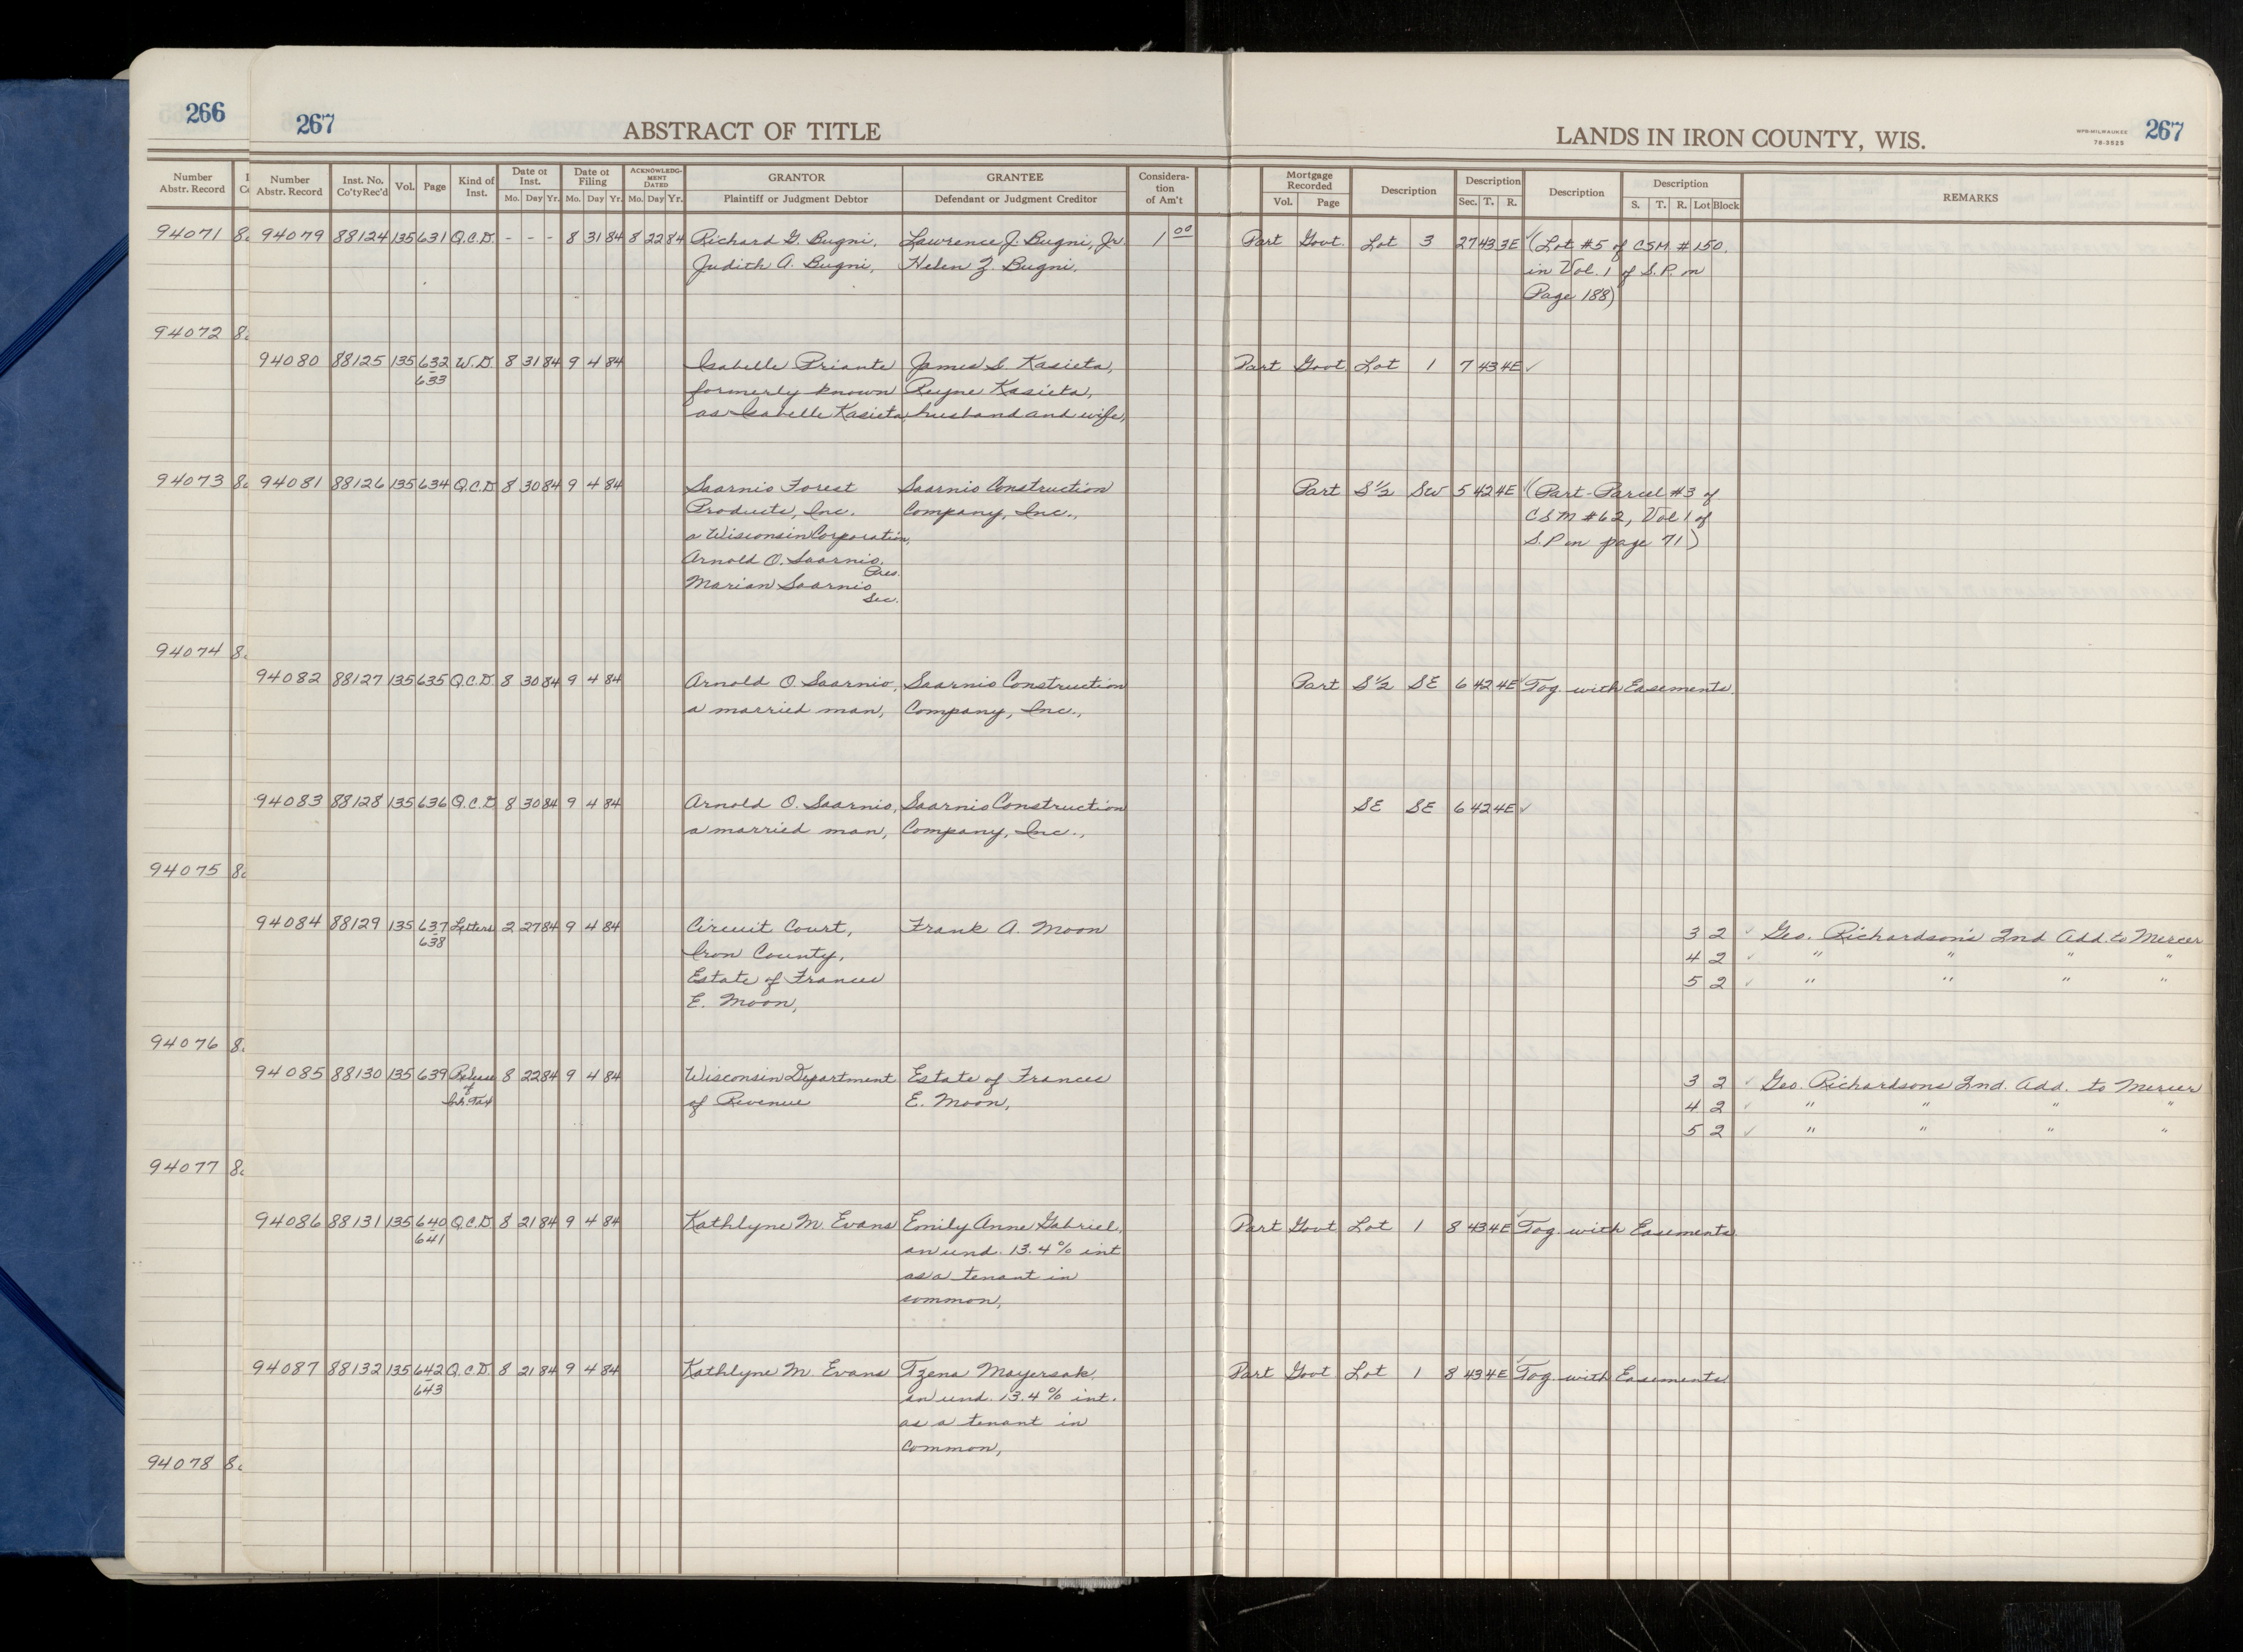 266
Number
Abstr. Record
94071 8
94072 8
94073 8
94074 8
94075 8
94076 8
94077 8
94078 8
267 ABSTRACT OF TITLE
LANDS IN IRON COUNTY, WIS. NPB-MILWAUKEE 78-3525 267
Number Abstr. Record Inst. No. Co'tyRec'd Vol. Page Kind of Inst. Date of Inst. Mo. Day Yr. Date of Filing Mo. Day Yr. ACKNOWLEDGMENT DATED Mo. Day Yr. GRANTOR Plaintiff or Judgment Debtor GRANTEE Defendant or Judgment Creditor Consideration of Am't Mortgage Recorded Vol. Page Description Description Sec. T. R. Description Description S. T. R. Lot Block REMARKS
94079 88124 135 631 Q.C.D. - - - 8 31 84 8 22 84 Richard G. Bugni, Lawrence J. Bugni, Jr. 1 00 Part Govt. Lot 3 27 43 3E ✓ (Lot #5 of CSM #150
Judith A. Bugni, Helen Z. Bugni, in Vol. 1 of S.P. on
Page 188)
94080 88125 135 632 W.D. 8 31 84 9 4 84 Isabelle Priante James S. Kasieta, Part Govt. Lot 1 7 43 4E ✓
633 formerly known Reyne Kasieta,
as Isabelle Kasieta, husband and wife,
94081 88126 135 634 Q.C.D. 8 30 84 9 4 84 Saarnio Forest Saarnio Construction Part S½ SW 5 42 4E ✓ (Part-Parcel #3 of
Products, Inc. Company, Inc., CSM #62, Vol 1 of
a Wisconsin Corporation, S.P. on page 71)
Arnold O. Saarnio,
Pres.
Marian Saarnio
Sec.
94082 88127 135 635 Q.C.D. 8 30 84 9 4 84 Arnold O. Saarnio, Saarnio Construction Part S½ SE 6 42 4E ✓ Tog. with Easements.
a married man, Company, Inc.,
94083 88128 135 636 Q.C.D. 8 30 84 9 4 84 Arnold O. Saarnio, Saarnio Construction SE SE 6 42 4E ✓
a married man, Company, Inc.,
94084 88129 135 637 Letters 2 27 84 9 4 84 Circuit Court, Frank A. Moon 3 2 ✓ Geo. Richardson's 2nd Add. to Mercer
638 Iron County, 4 2 ✓ " " " "
Estate of Frances 5 2 ✓ " " " "
E. Moon,
94085 88130 135 639 Release 8 22 84 9 4 84 Wisconsin Department Estate of Frances 3 2 ✓ Geo. Richardsons 2nd. Add. to Mercer
of of Revenue E. Moon, 4 2 ✓ " " " "
Inh. Tax 5 2 ✓ " " " "
94086 88131 135 640 Q.C.D. 8 21 84 9 4 84 Kathlyne M. Evans Emily Anne Gabriel, Part Govt. Lot 1 8 43 4E ✓ Tog. with Easements.
641 an und. 13.4% int
as a tenant in
common,
94087 88132 135 642 Q.C.D. 8 21 84 9 4 84 Kathlyne M. Evans Tzena Mayersak, Part Govt Lot 1 8 43 4E ✓ Tog. with Easements.
643 an und. 13.4% int.
as a tenant in
common,